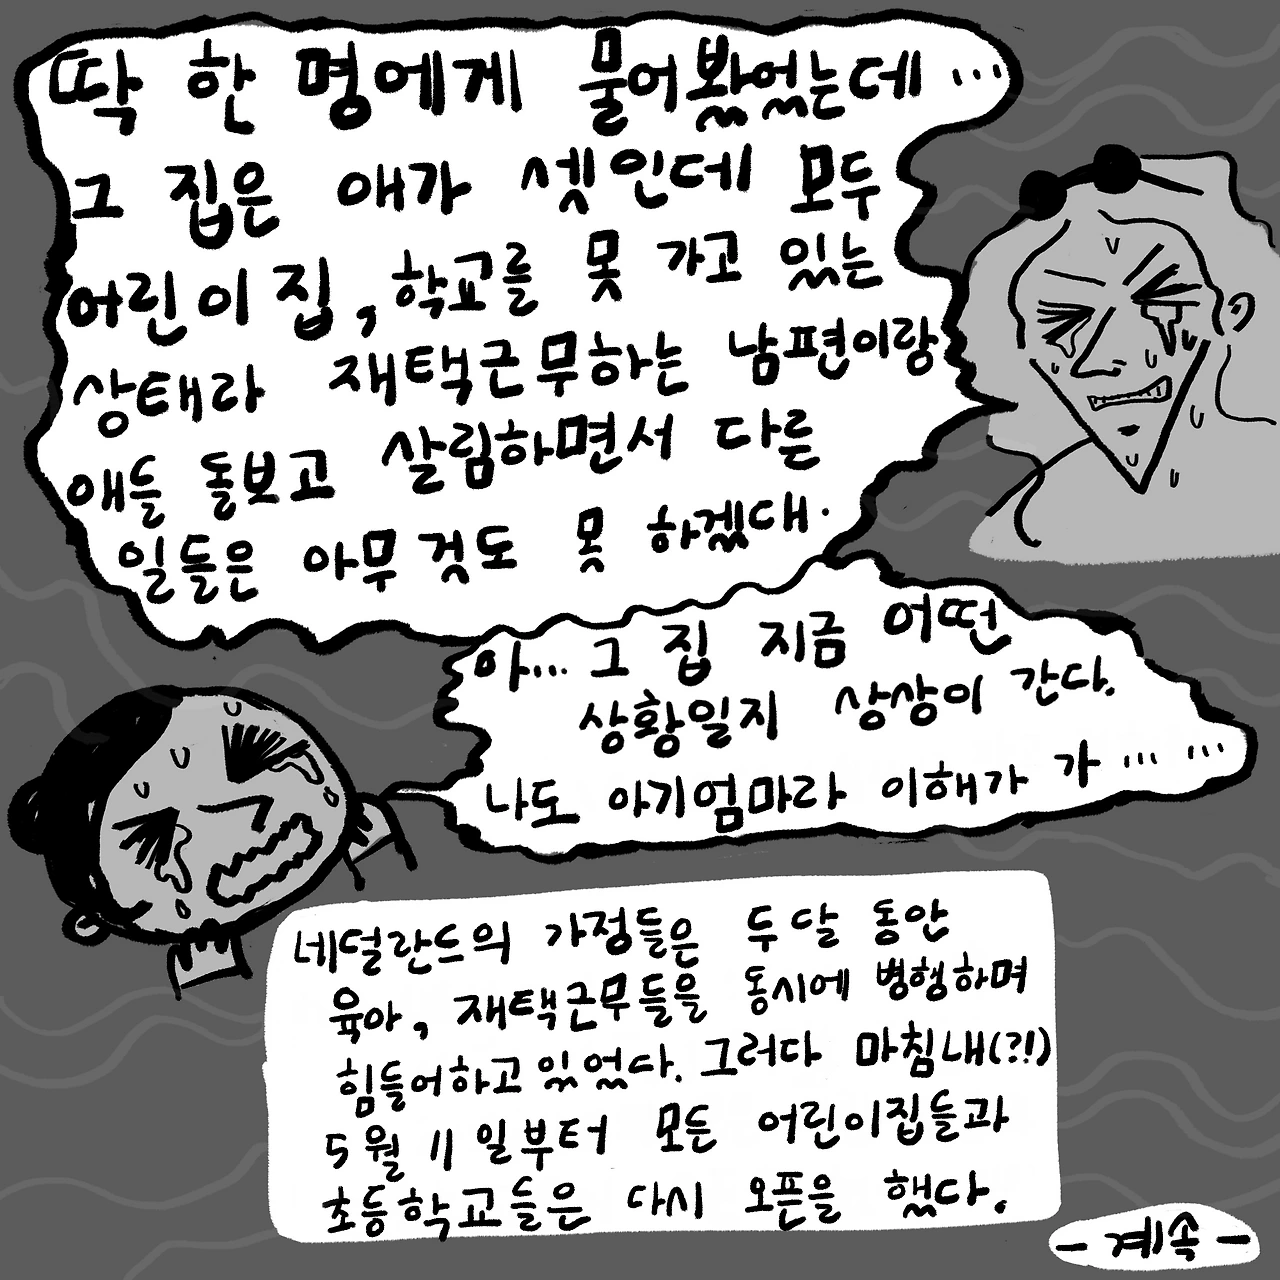 딱 한 명에게 물어봤었는데...
그 집은 애가 셋인데 모두
어린이집, 학교를 못 가고 있는
상태라 재택근무하는 남편이랑
애들 돌보고 살림하면서 다른
일들은 아무것도 못 하겠대.
아... 그 집 지금 어떤
상황일지 상상이 간다.
나도 아기엄마라 이해가 가... ...
네덜란드의 가정들은 두 달 동안
육아, 재택근무들을 동시에 병행하며
힘들어하고 있었다. 그러다 마침내(?!)
5월 11일부터 모든 어린이집들과
초등학교들은 다시 오픈을 했다.
- 계속 -